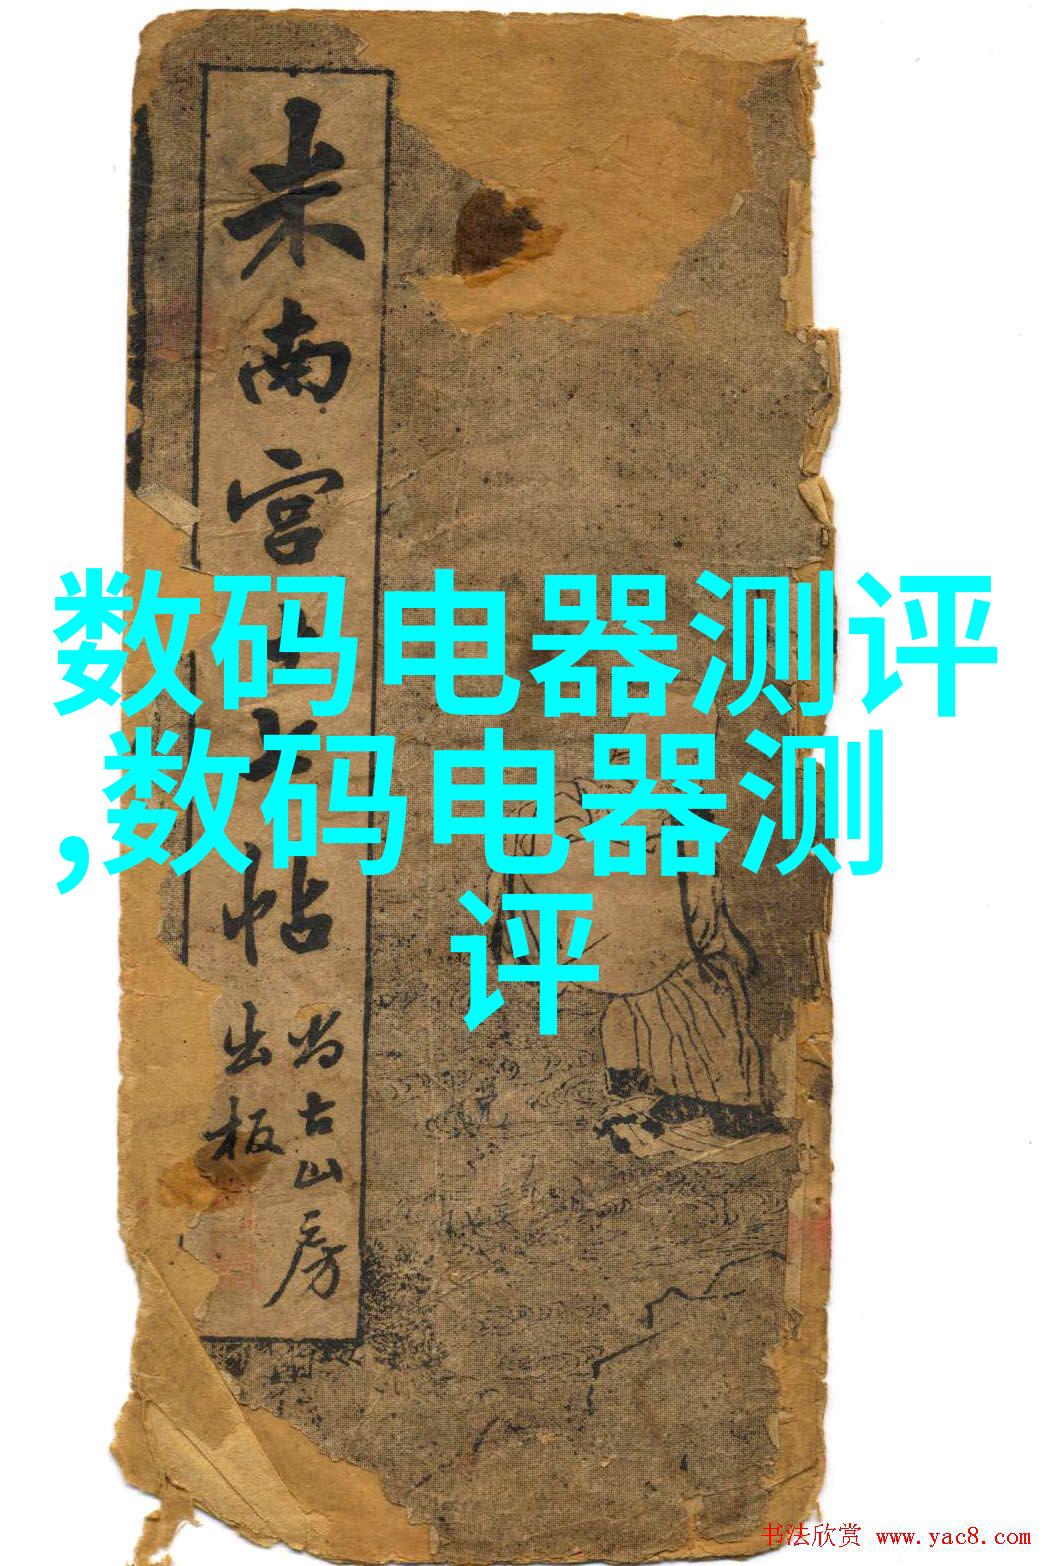 米南宫十七帖
尚古山房
出板
数码电器测评
,数码电器测
评
书法欣赏 www.yac8.com